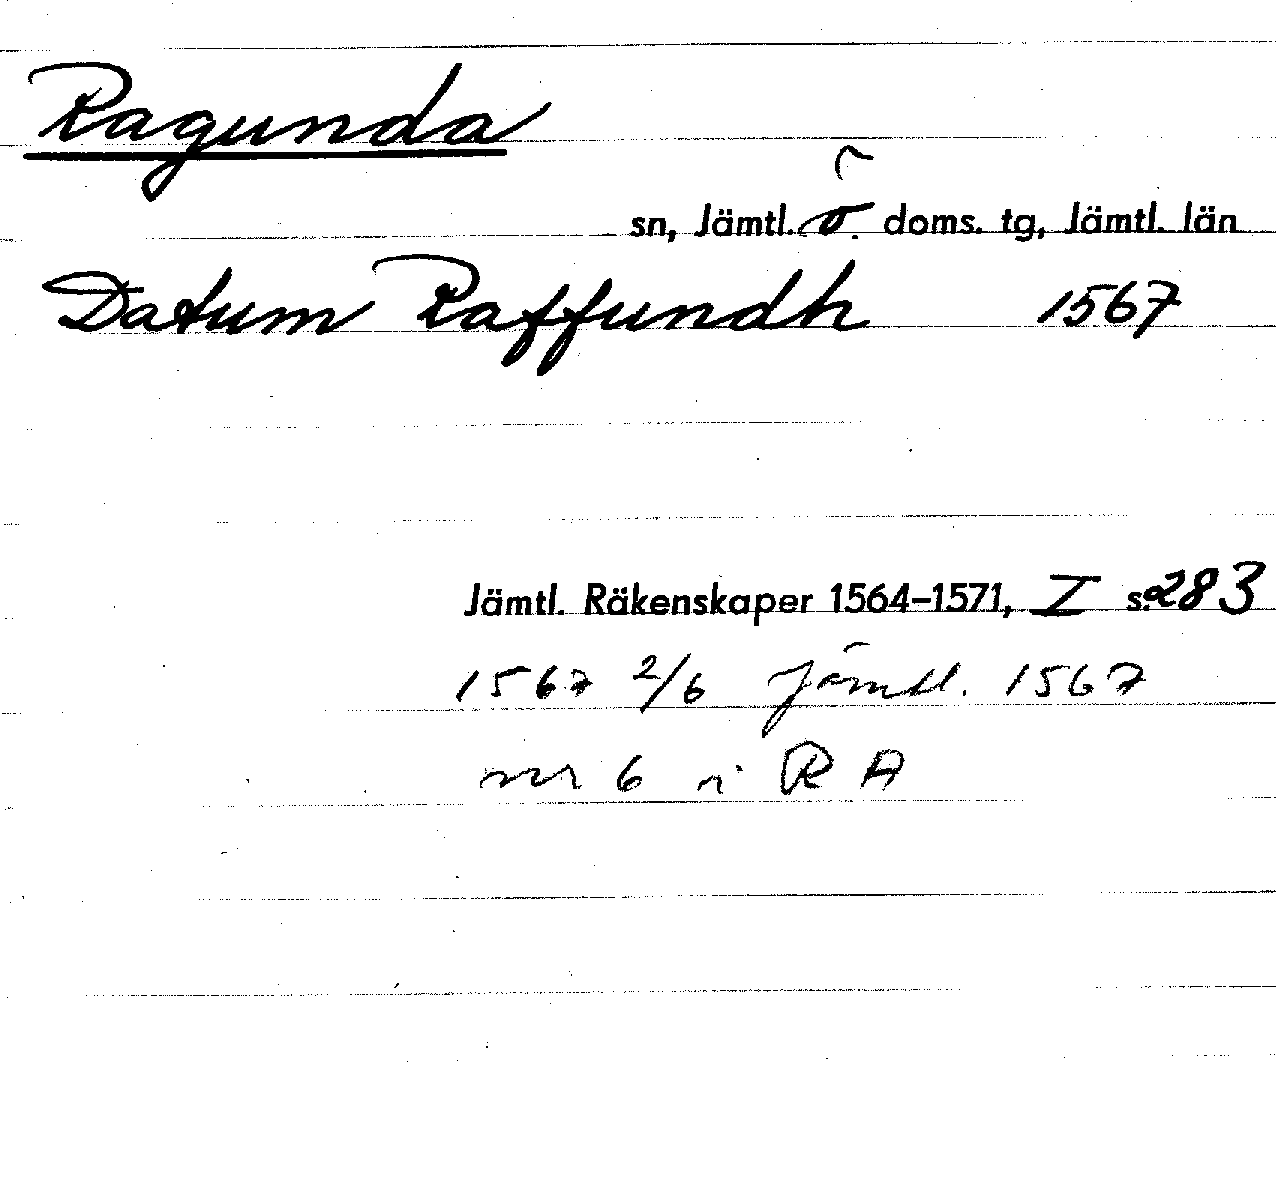 Ragunda
sn, Jämtl. ö. doms. tg, Jämtl. län
Datum Raffundh 1567
Jämtl. Räkenskaper 1564-1571, I s. 283
1567 2/6 Jämtl. 1567
nr 6 i RA